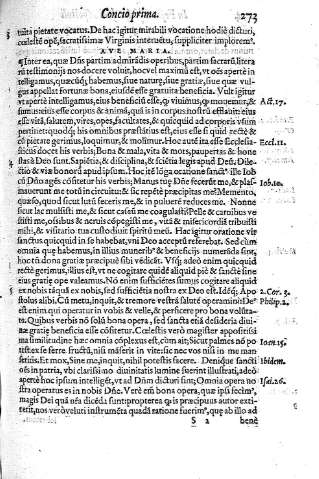 Concio prima. 273
tuita pietate vocatus. De hac igitur mirabili vocatione hodie dicturi,
cœlestē opē, sacratissimæ Virginis interuētu, suppliciter implorem⁹.
AVE MARIA.
¶ Inter ea, quæ Dn̄s partim admirādis operibus, partim sacrarū litera
rū testimonijs nos docere voluit, hoc vel maxima est, vt oēs apertè in
telligamus, quæcūq; habemus, siue naturæ, siue gratiæ, siue quæ vul-
gus appellat fortunæ bona, eiusdē esse gratuita beneficia. Vult igitur
vt apertè intelligamus, eius beneficiū esse, q̄ viuimus, q̄ mouemur, & Act. 17.
sumus: eius esse corpus & animā, quā is in corpus nostrū efflauit: eius
esse vitā, salutem, vires, opes, facultates, & quicquid ad corporis vsum
pertinet: quodq; his omnibus præstātius est, eius esse si quid rectè &
cū pietate gerimus, loquimur, & molimur. Hoc autē ita esse Ecclesia- Eccl. 11.
sticus docet his verbis; Bona & mala, vita & mors, paupertas & hone
stas à Deo sunt. Sapiētia, & disciplina, & sciētia legis apud Deū. Dile-
ctio & viæ bonorū apud ipsum. Hoc itē lōga oratione sanct⁹ ille Iob
cū Dn̄o agēs cōfitetur his verbis; Manus tuę Dn̄e fecerūt me, & plas- Iob. 10.
mauerunt me totū in circuitu: & sic repētè præcipitas me? Memento,
quæso, quod sicut lutū feceris me, & in puluerē reduces me. Nonne
sicut lac mulsisti me, & sicut caseū me coagulasti? Pelle & carnibus ve
stisti me, ossibus & neruis cōpegisti me. Vitā & misericordiā tribuisti
mihi, & visitatio tua custodiuit spiritū meū. Hac igitur oratione vir
sanctus quicquid in se habebat, vni Deo acceptū referebat. Sed cùm
omnia quę habemus, in illius munerib⁹ & beneficijs numerāda sint,
hoc tñ dona gratiæ præcipuè sibi vēdicāt. Vsq; adeò enim quicquid
rectè gerimus, illius est, vt ne cogitare quidē aliquid piè & sanctè sine
eius gratię ope valeamus. Nō enim sufficiētes sumus cogitare aliquid
ex nobis tāquā ex nobis, sed sufficiētia nostra ex Deo est. Idēq; Apo 2. Cor. 3.
stolus alibi. Cū metu, inquit, & tremore vestrā salutē operamini: De⁹ Philip. 2.
est enim qui operatur in vobis & velle, & perficere pro bona volūta-
te. Quibus verbis nō solū bona opera, sed sancta etiā desideria diui-
næ gratię beneficia esse cōfitetur. Cœlestis verò magister appositissi
ma similitudine hæc omnia cōplexus est, cùm ait; Sicut palmes nō po Ioan. 15.
test ex se ferre fructū, nisi manserit in vite: sic nec vos nisi in me man-
seritis. Et mox, Sine me, inquit, nihil potestis facere. Deniq̄ue sancti Ibidem.
oēs in patria, vbi clarissimo diuinitatis lumine fuerint illustrati, adeò
apertè hoc ipsum intelligēt, vt ad Dn̄m dicturi sint; Omnia opera no Isai. 26.
stra operatus es in nobis Dn̄e. Verè em̄ bona opera, quæ ipsi fecim⁹,
magis Dei quā n̄ra dicēda sunt: propterea q̄ is præcipuus autor exti-
terit, nos verò veluti instrumēta quædā ratione fuerim⁹, quę ab illo ad
S 2 benè